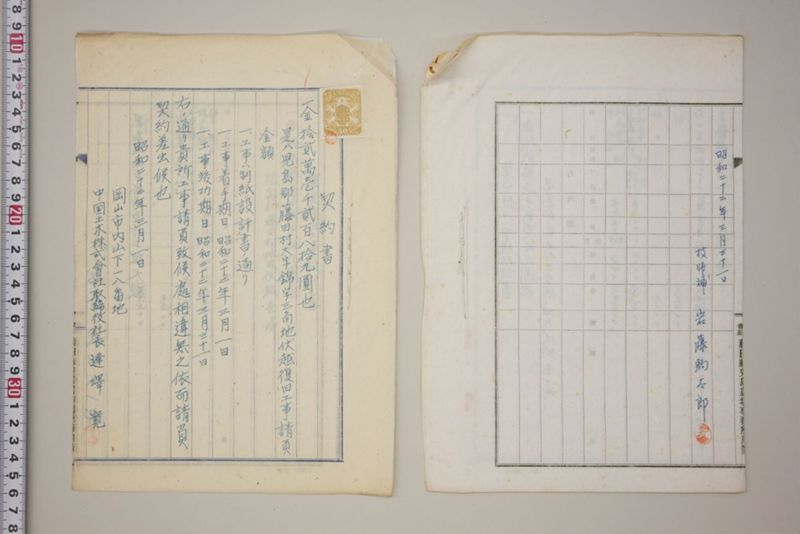 契約書
一金拾貳萬壱千貳百八拾九圓也
是ハ児島郡藤田村大字錦第三南地伏越復旧工事請負
金額
一.工事ハ別紙設計書ノ通リ
一.工事着手期日 昭和二十二年三月一日
一.工事竣功期日 昭和二十二年三月三十一日
右ノ通リ貴所工事請負致候處相違無之依而請負
契約差出候也
昭和二十二年三月一日
岡山市内山下一八番地
中国土木株式會社取締役社長 達 寛
昭和二十二年三月三十一日
技師補 岩藤駒太郎